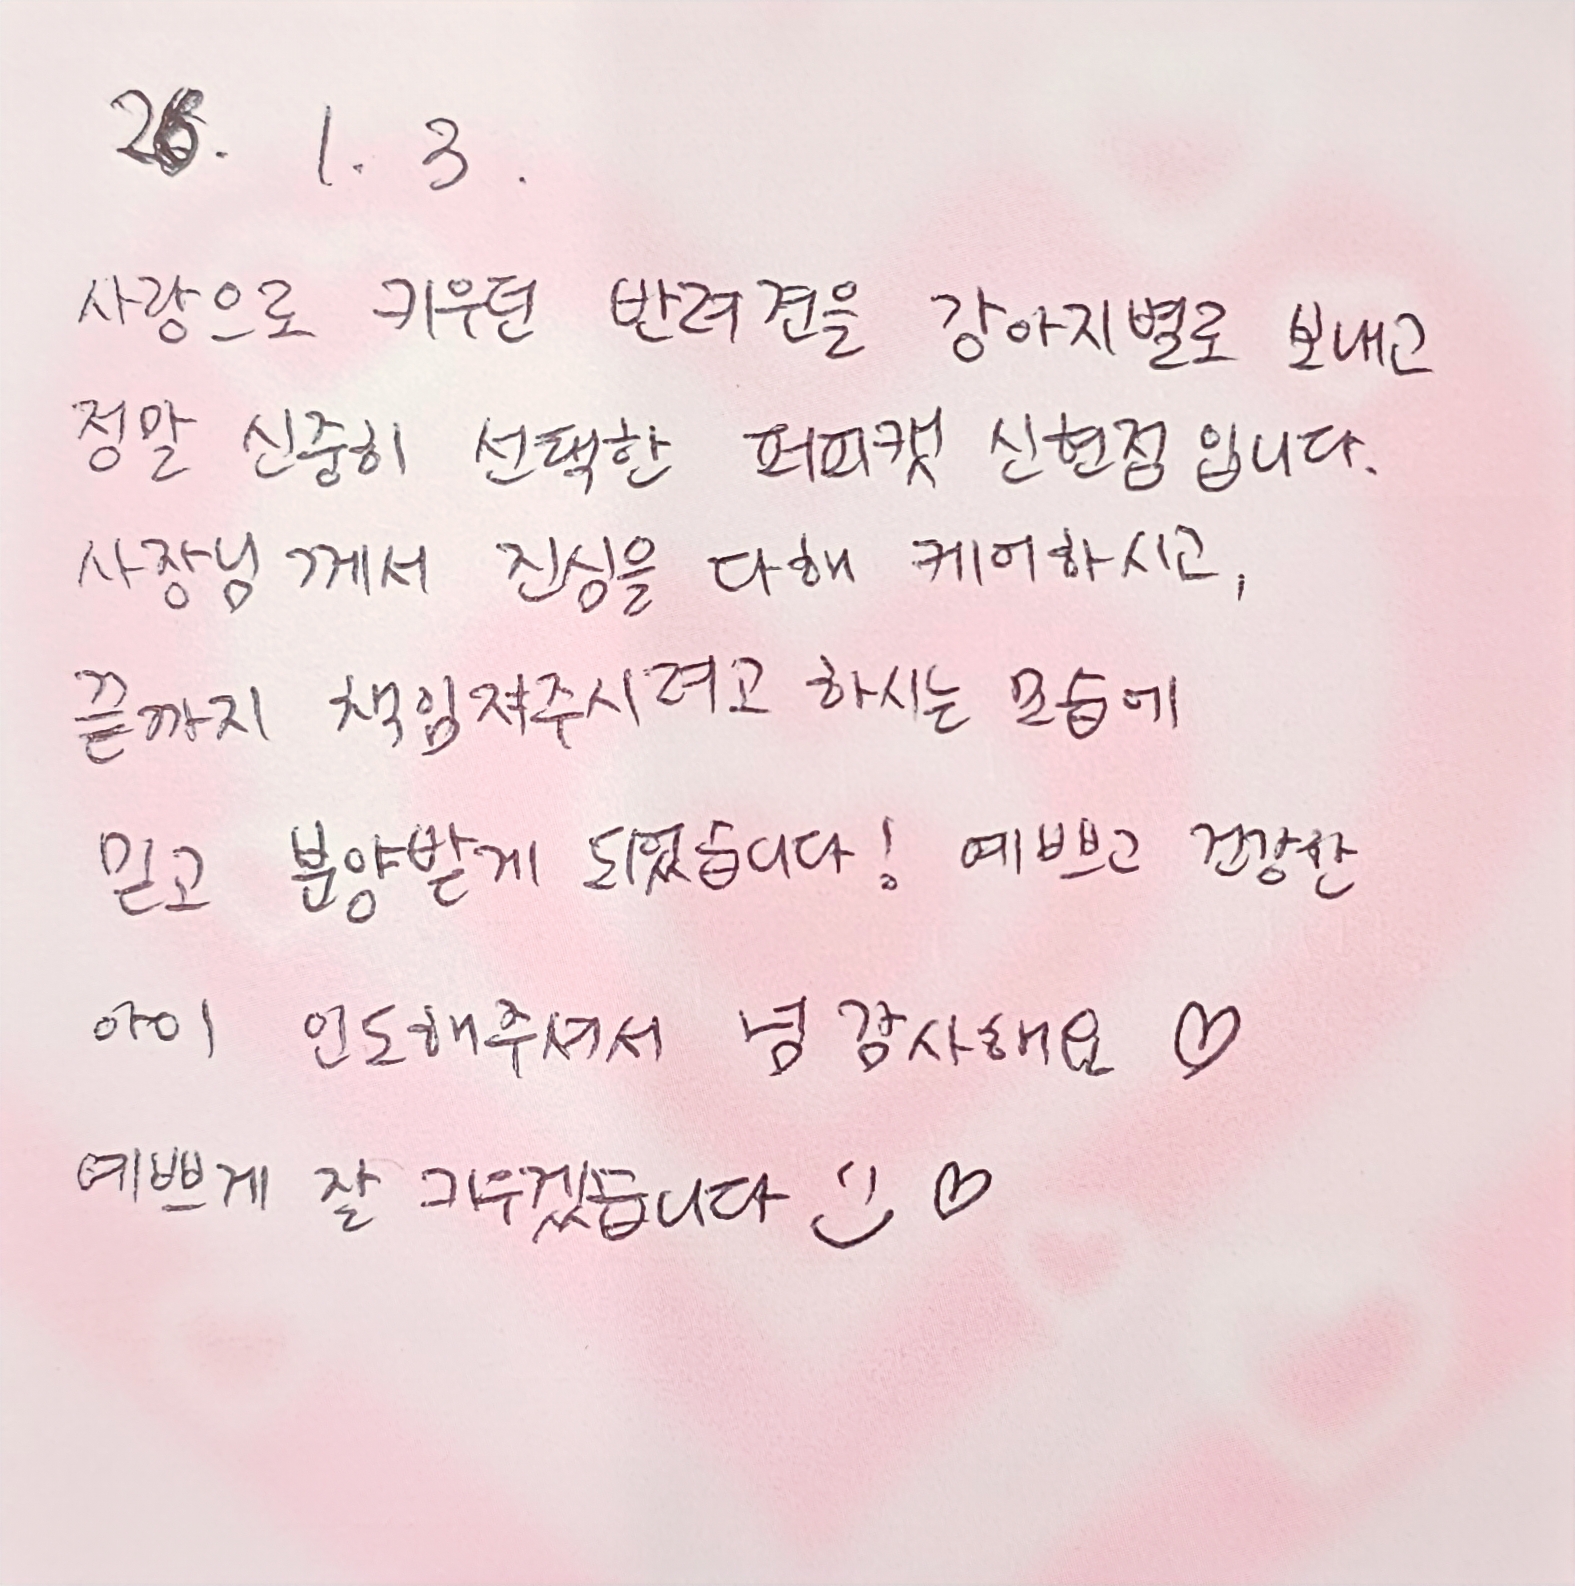 26. 1. 3.
사랑으로 키우던 반려견을 강아지별로 보내고
정말 신중히 선택한 퍼피캣 신현점입니다.
사장님께서 진심을 다해 케어하시고,
끝까지 책임져주시려고 하시는 모습에
믿고 분양받게 되었습니다! 예쁘고 건강한
아이 인도해주셔서 넘 감사해요 ♡
예쁘게 잘 키우겠습니다 :) ♡